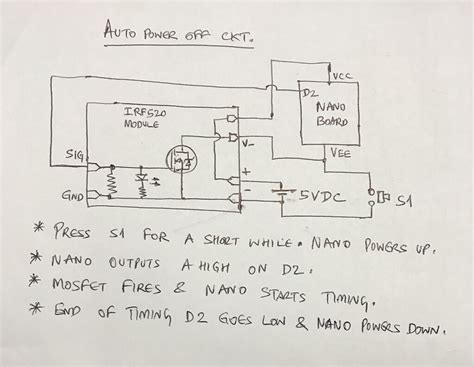 AUTO POWER OFF CKT.
VCC
D2
NANO
BOARD
VEE
IRF520
MODULE
SIG
V-
+
-
GND
5VDC
S1
* PRESS S1 FOR A SHORT WHILE. NANO POWERS UP.
* NANO OUTPUTS A HIGH ON D2.
* MOSFET FIRES & NANO STARTS TIMING.
* END OF TIMING D2 GOES LOW & NANO POWERS DOWN.